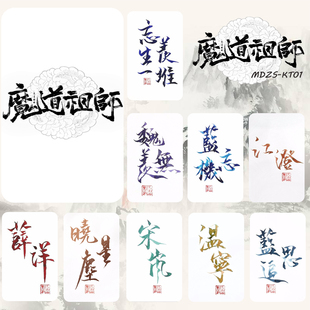 魔道祖師
忘羨
一生堆
魔道祖師
MDZS-KT01
魏無羨
藍忘機
江澄
薛洋
曉星塵
宋嵐
溫寧
藍思追